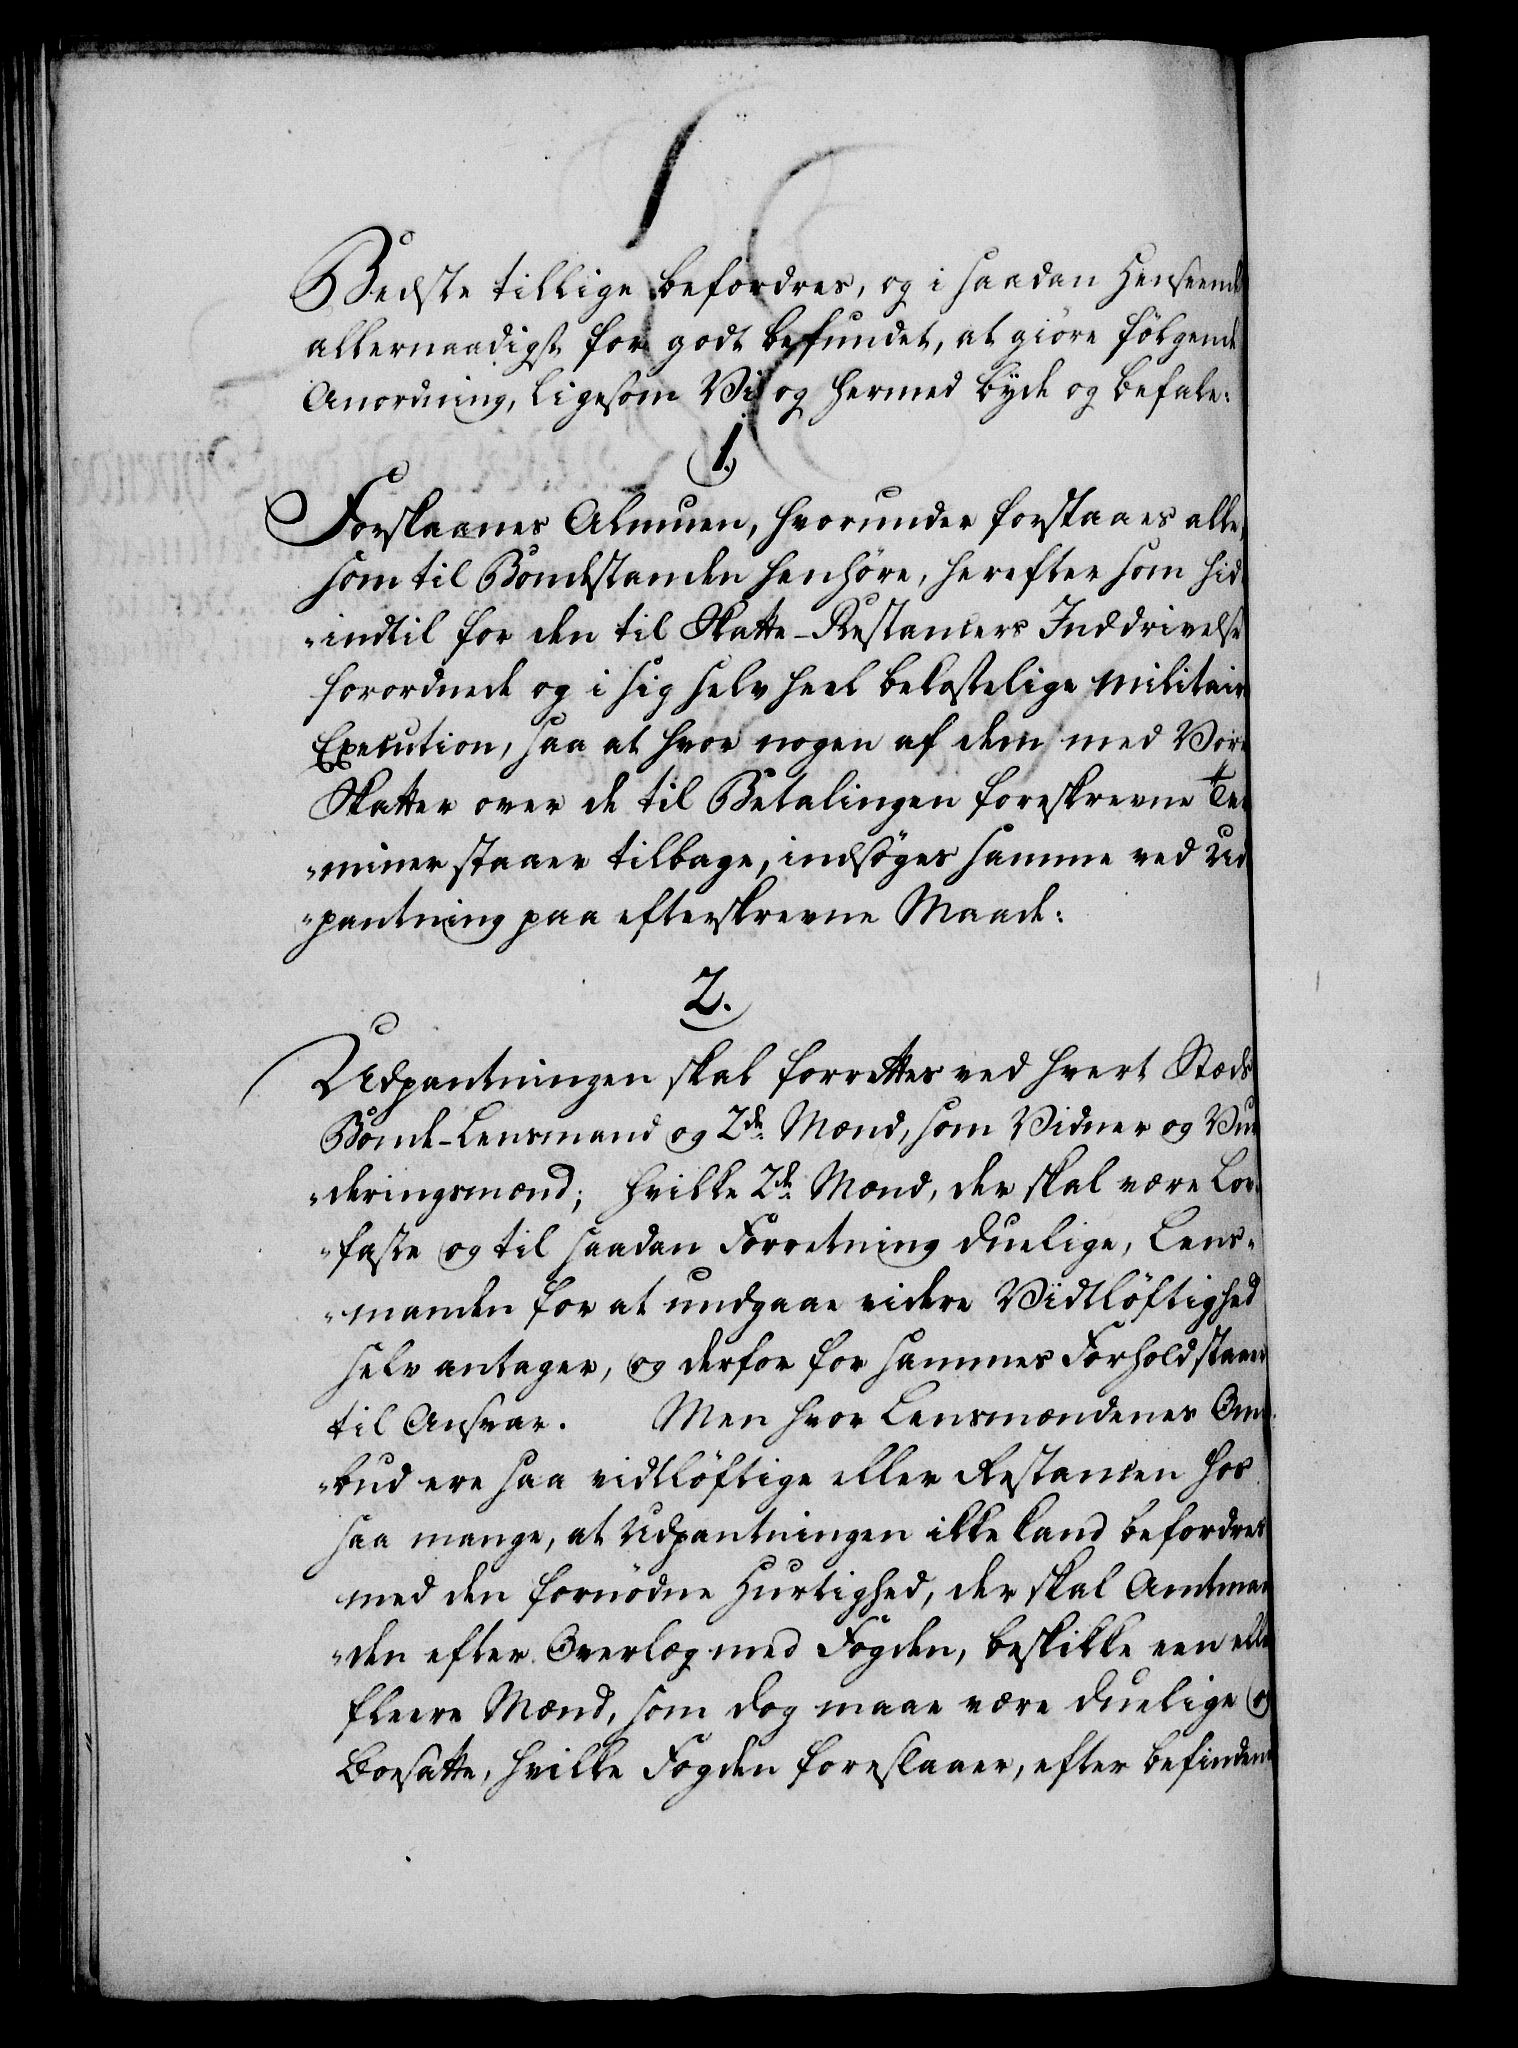 Bedste tillige befordres, og i saadan Henseende
allernaadigst for godt befundet, at giöre fölgende
Anordning, ligesom Vi og hermed byde og befale:
1.
Forskaanes Almuen, hvorunder forstaaes alle,
som til Bondestanden henhöre, herefter som hid-
"indtil for den til Skatte-Restancers Inddrivelse
forordnede og i sig selv heel bekostelige militair
Execution, saa at hvor nogen af dem med Vore
Skatter over de til Betalingen foreskrevne Ter
"miner staaer tilbage, indsöges samme ved Ud
"pantning paa efterskrevne Maade:
2.
Udpantningen skal forrettes ved hvert Stæds
Bonde-Lensmand og 2de Mænd, som Vidner og Vur
"deringsmænd; hvilke 2de Mænd, der skal være Boe
"faste og til saadan Forretning duelige, Lens-
"manden for at undgaae videre Vidtlöftighed
selv antager, og derfor for sammes Forhold staaer
til Ansvar. Men hvor Lensmændenes Om
"bud ere saa vidtlöftige eller Restancen hos
saa mange, at Udpantningen ikke kand befordres
med den fornödne Hurtighed, der skal Amtman
"den efter Overlæg med Fogden, beskikke een eller
fleere Mænd, som dog maae være duelige og
Boesatte, hvilke Fogden foreslaaer, efter befindend